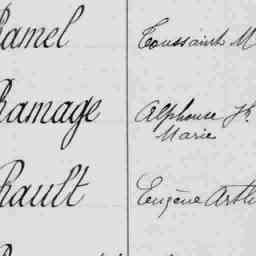 Ramel Toussaint M
Ramage Alphonse Jh
Marie
Rault Eugène Arthu